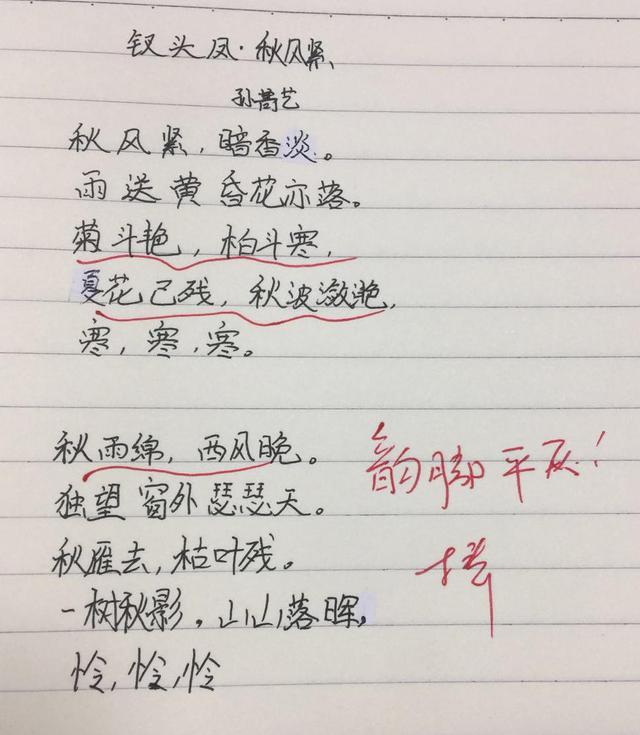 钗头凤·秋风紧
孙蒈艺
秋风紧，暗香淡。
雨送黄昏花亦落。
菊斗艳，柏斗寒，
夏花已残，秋波潋滟，
寒，寒，寒。
秋雨绵，西风晚。
独望窗外瑟瑟天。
秋雁去，枯叶残。
一树秋影，山山落晖，
怜，怜，怜
韵脚平仄！